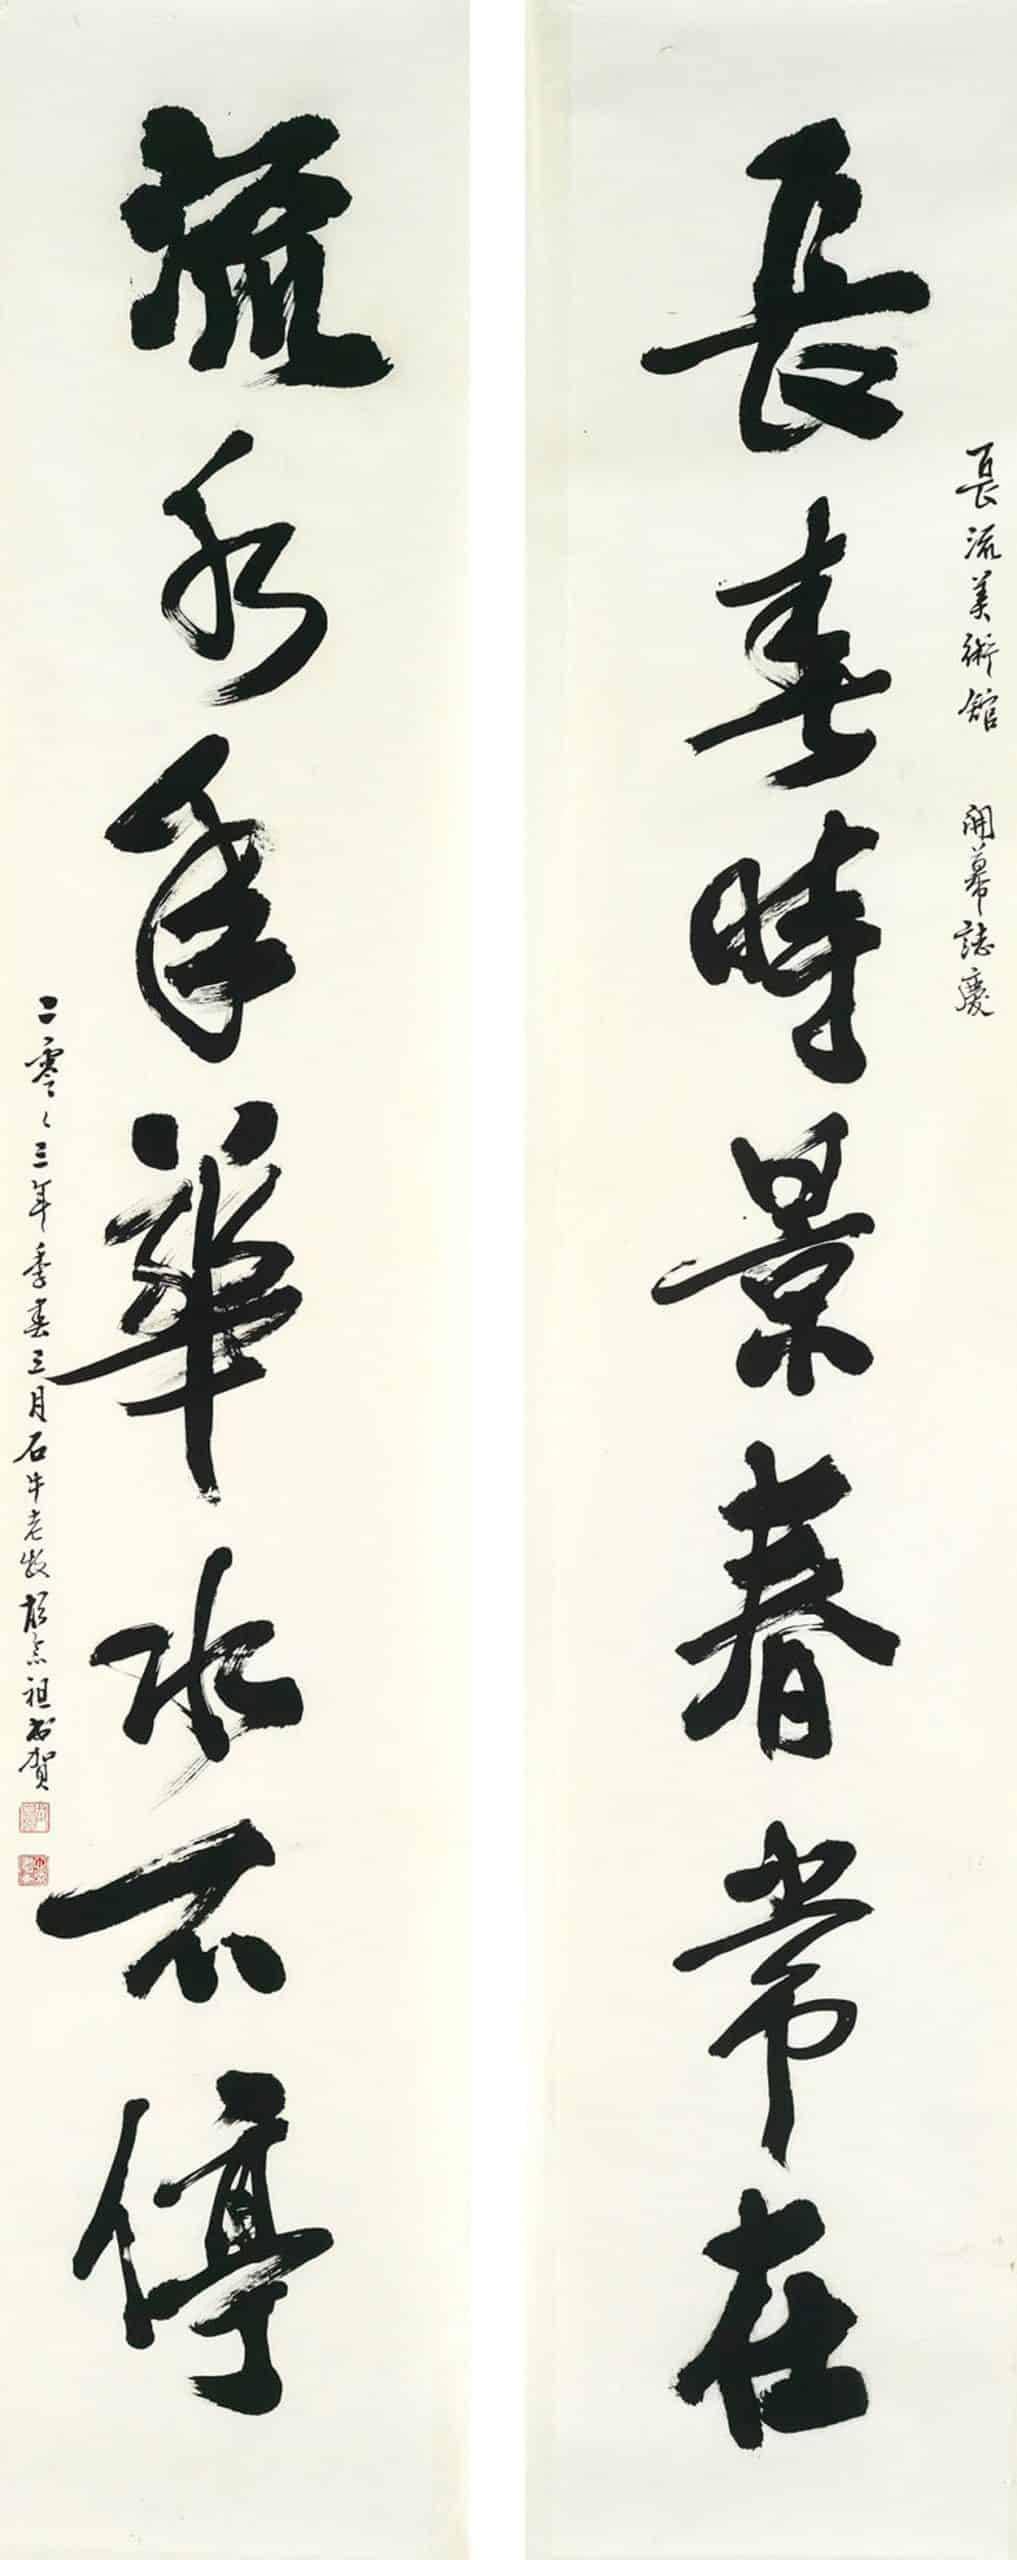 長流美術館 開幕誌慶
長春時景春常在
流水年華水不停
二零〻三年季春三月石牛老牧 祖書賀